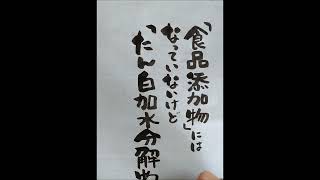 「食品添加物」には
なっていないけど
「たん白加水分解物